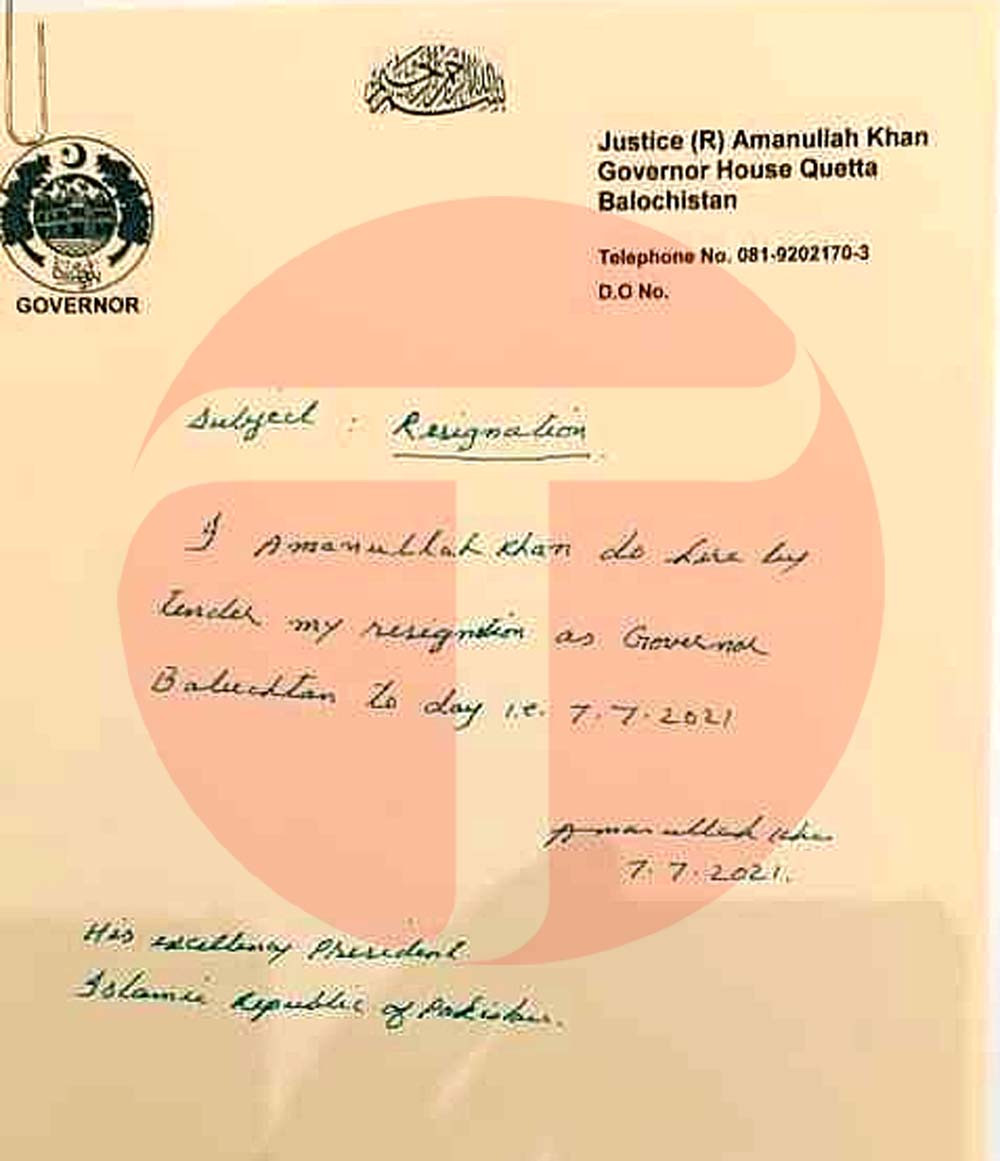 بسم الله الرحمن الرحيم
Justice (R) Amanullah Khan
Governor House Quetta
Balochistan
Telephone No. 081-9202170-3
D.O No.
GOVERNOR
Subject : Resignation
I Amanullah Khan do here by
tender my resigntion as Governor
Baluchtan to day i.e. 7.7.2021
Amanullah Khan
7.7.2021.
His excellency President
Islamic Republic of Pakistan.